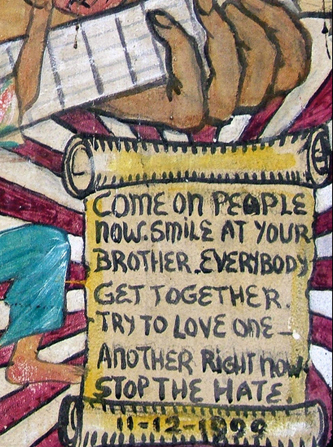 COME ON PEOPLE
NOW. SMILE AT YOUR
BROTHER. EVERYBODY
GET TOGETHER.
TRY TO LOVE ONE
ANOTHER RIGHT NOW
STOP THE HATE
11-12-1999